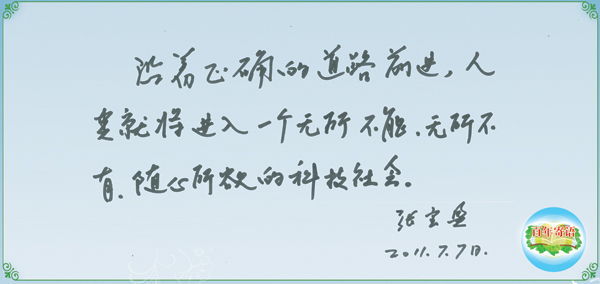 沿着正确的道路前进，人
类就将进入一个无所不能、无所不
有、随心所欲的科技社会。
张宝盈
2011.7.7日.
百年寄语